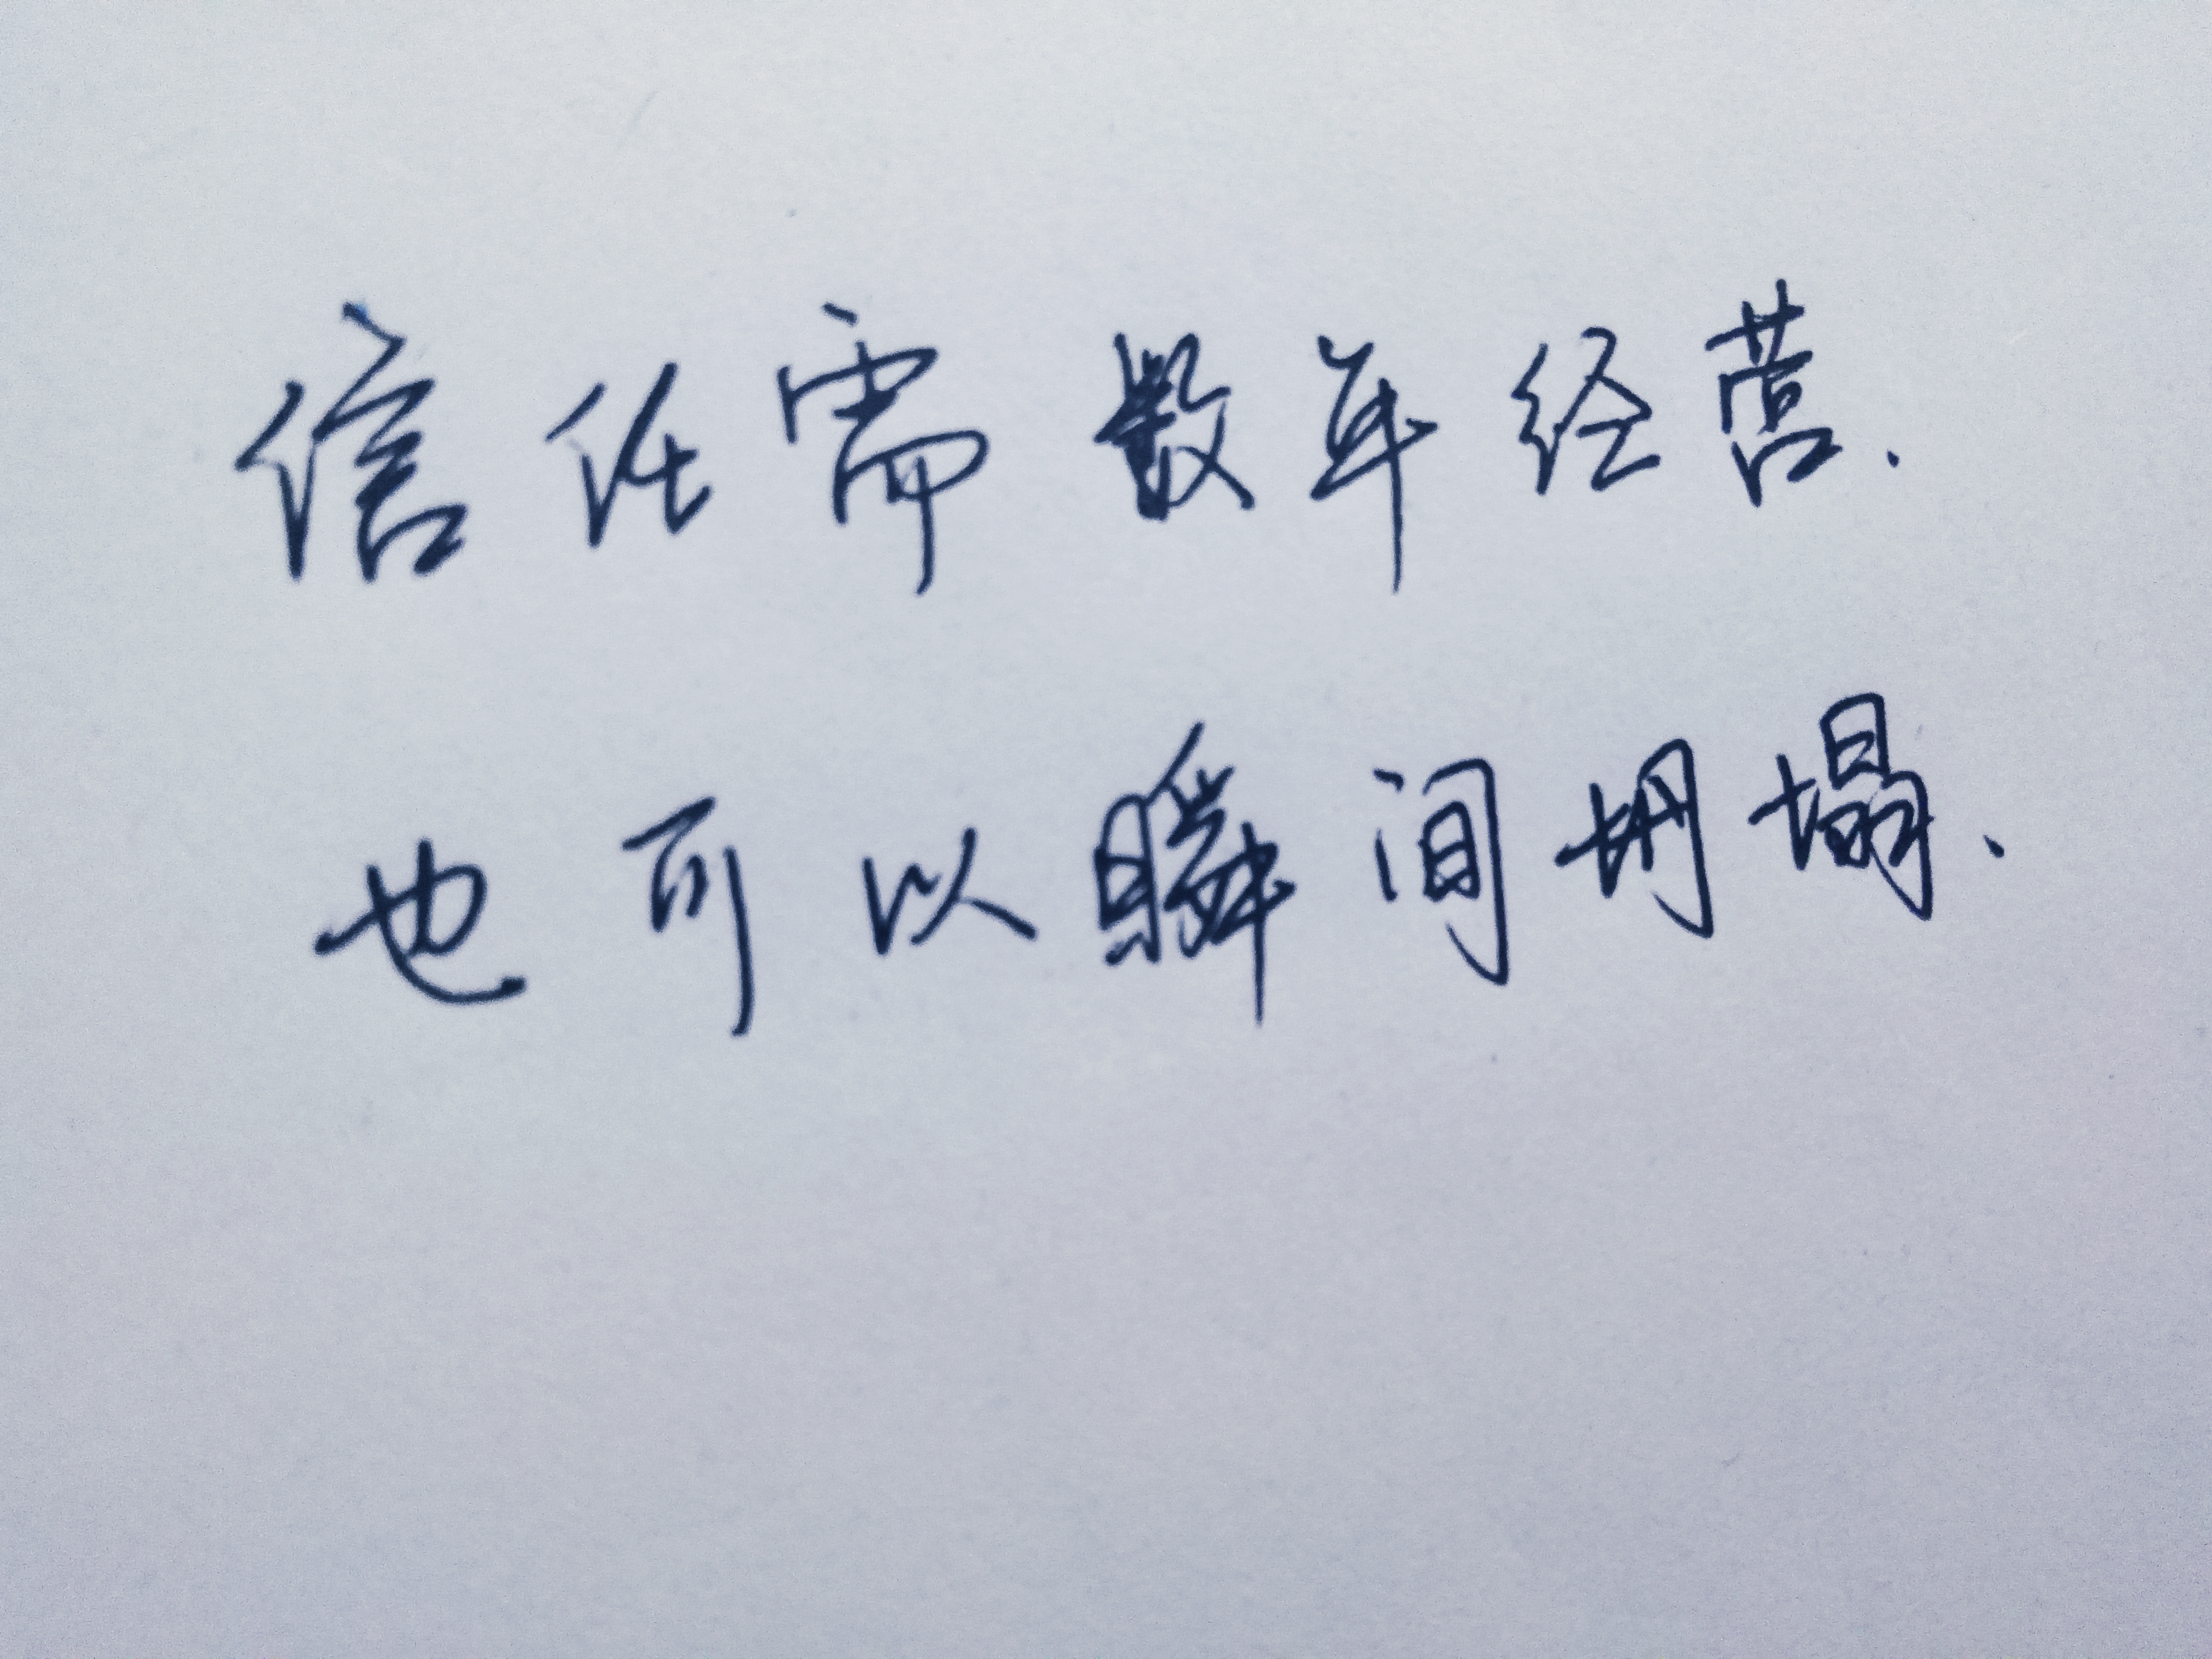 信任需数年经营.
也可以瞬间坍塌.